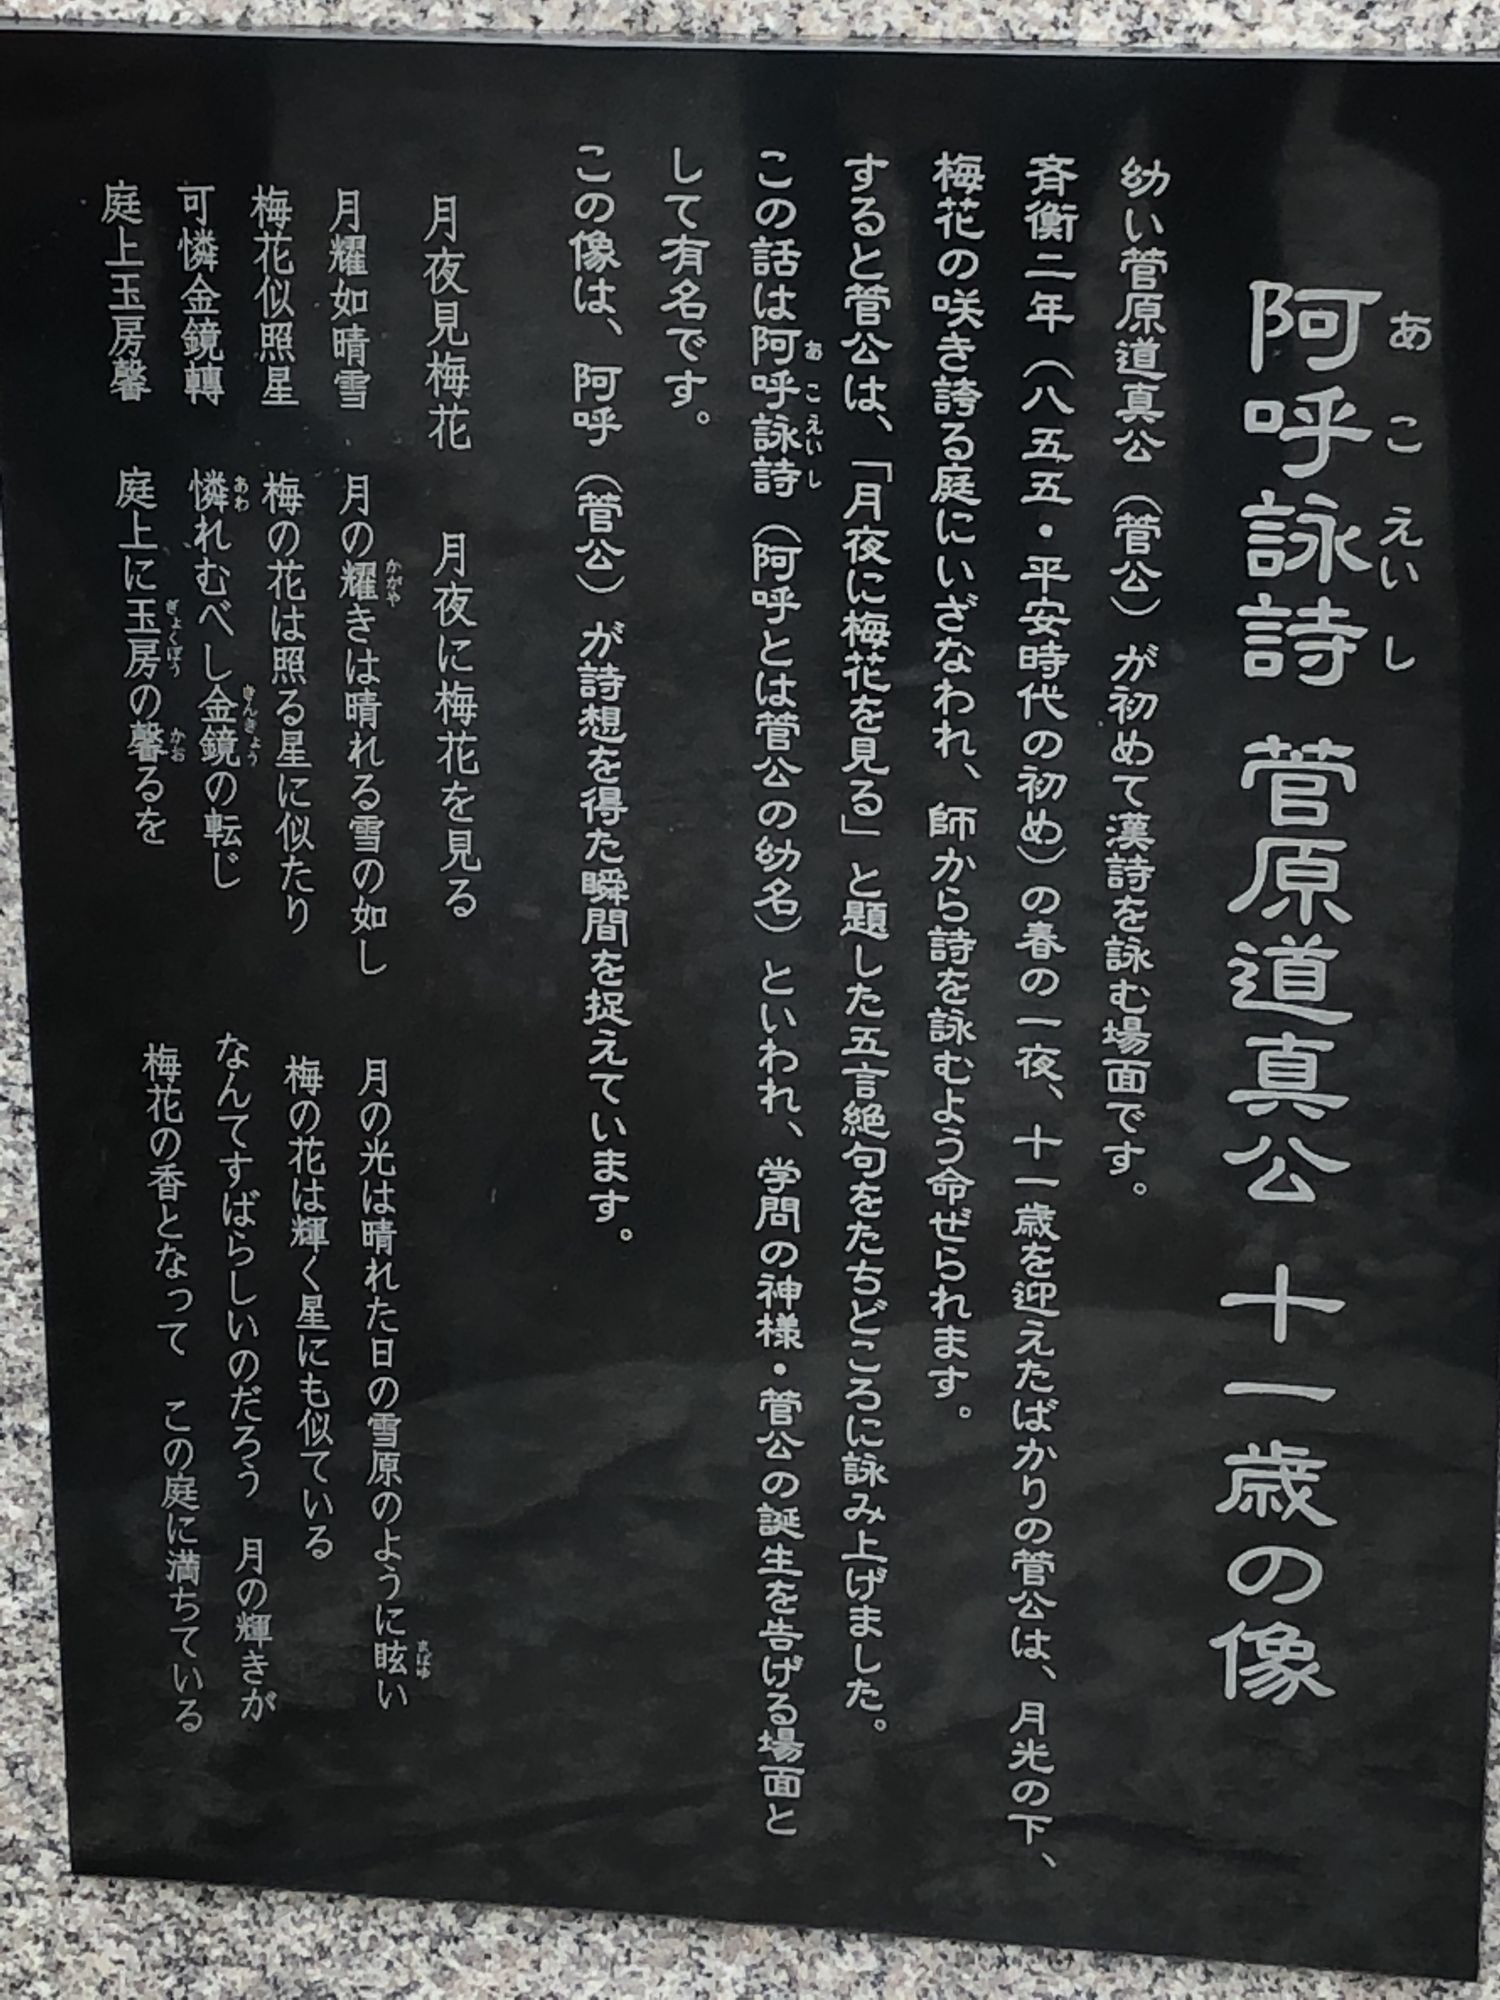 阿呼詠詩 菅原道真公 十一歳の像
あこえいし
幼い菅原道真公（菅公）が初めて漢詩を詠む場面です。
斉衡二年（八五五・平安時代の初め）の春の一夜、十一歳を迎えたばかりの菅公は、月光の下、
梅花の咲き誇る庭にいざなわれ、師から詩を詠むよう命ぜられます。
すると菅公は、「月夜に梅花を見る」と題した五言絶句をたちどころに詠み上げました。
この話は阿呼詠詩（阿呼とは菅公の幼名）といわれ、学問の神様・菅公の誕生を告げる場面と
あこえいし
して有名です。
この像は、阿呼（菅公）が詩想を得た瞬間を捉えています。
月夜見梅花 月夜に梅花を見る
月耀如晴雪 月の耀きは晴れる雪の如し 月の光は晴れた日の雪原のように眩い
かがや まばゆ
梅花似照星 梅の花は照る星に似たり 梅の花は輝く星にも似ている
可憐金鏡轉 憐れむべし金鏡の転じ なんてすばらしいのだろう 月の輝きが
あわ きんきょう
庭上玉房馨 庭上に玉房の馨るを 梅花の香となって この庭に満ちている
ぎょくぼう かお